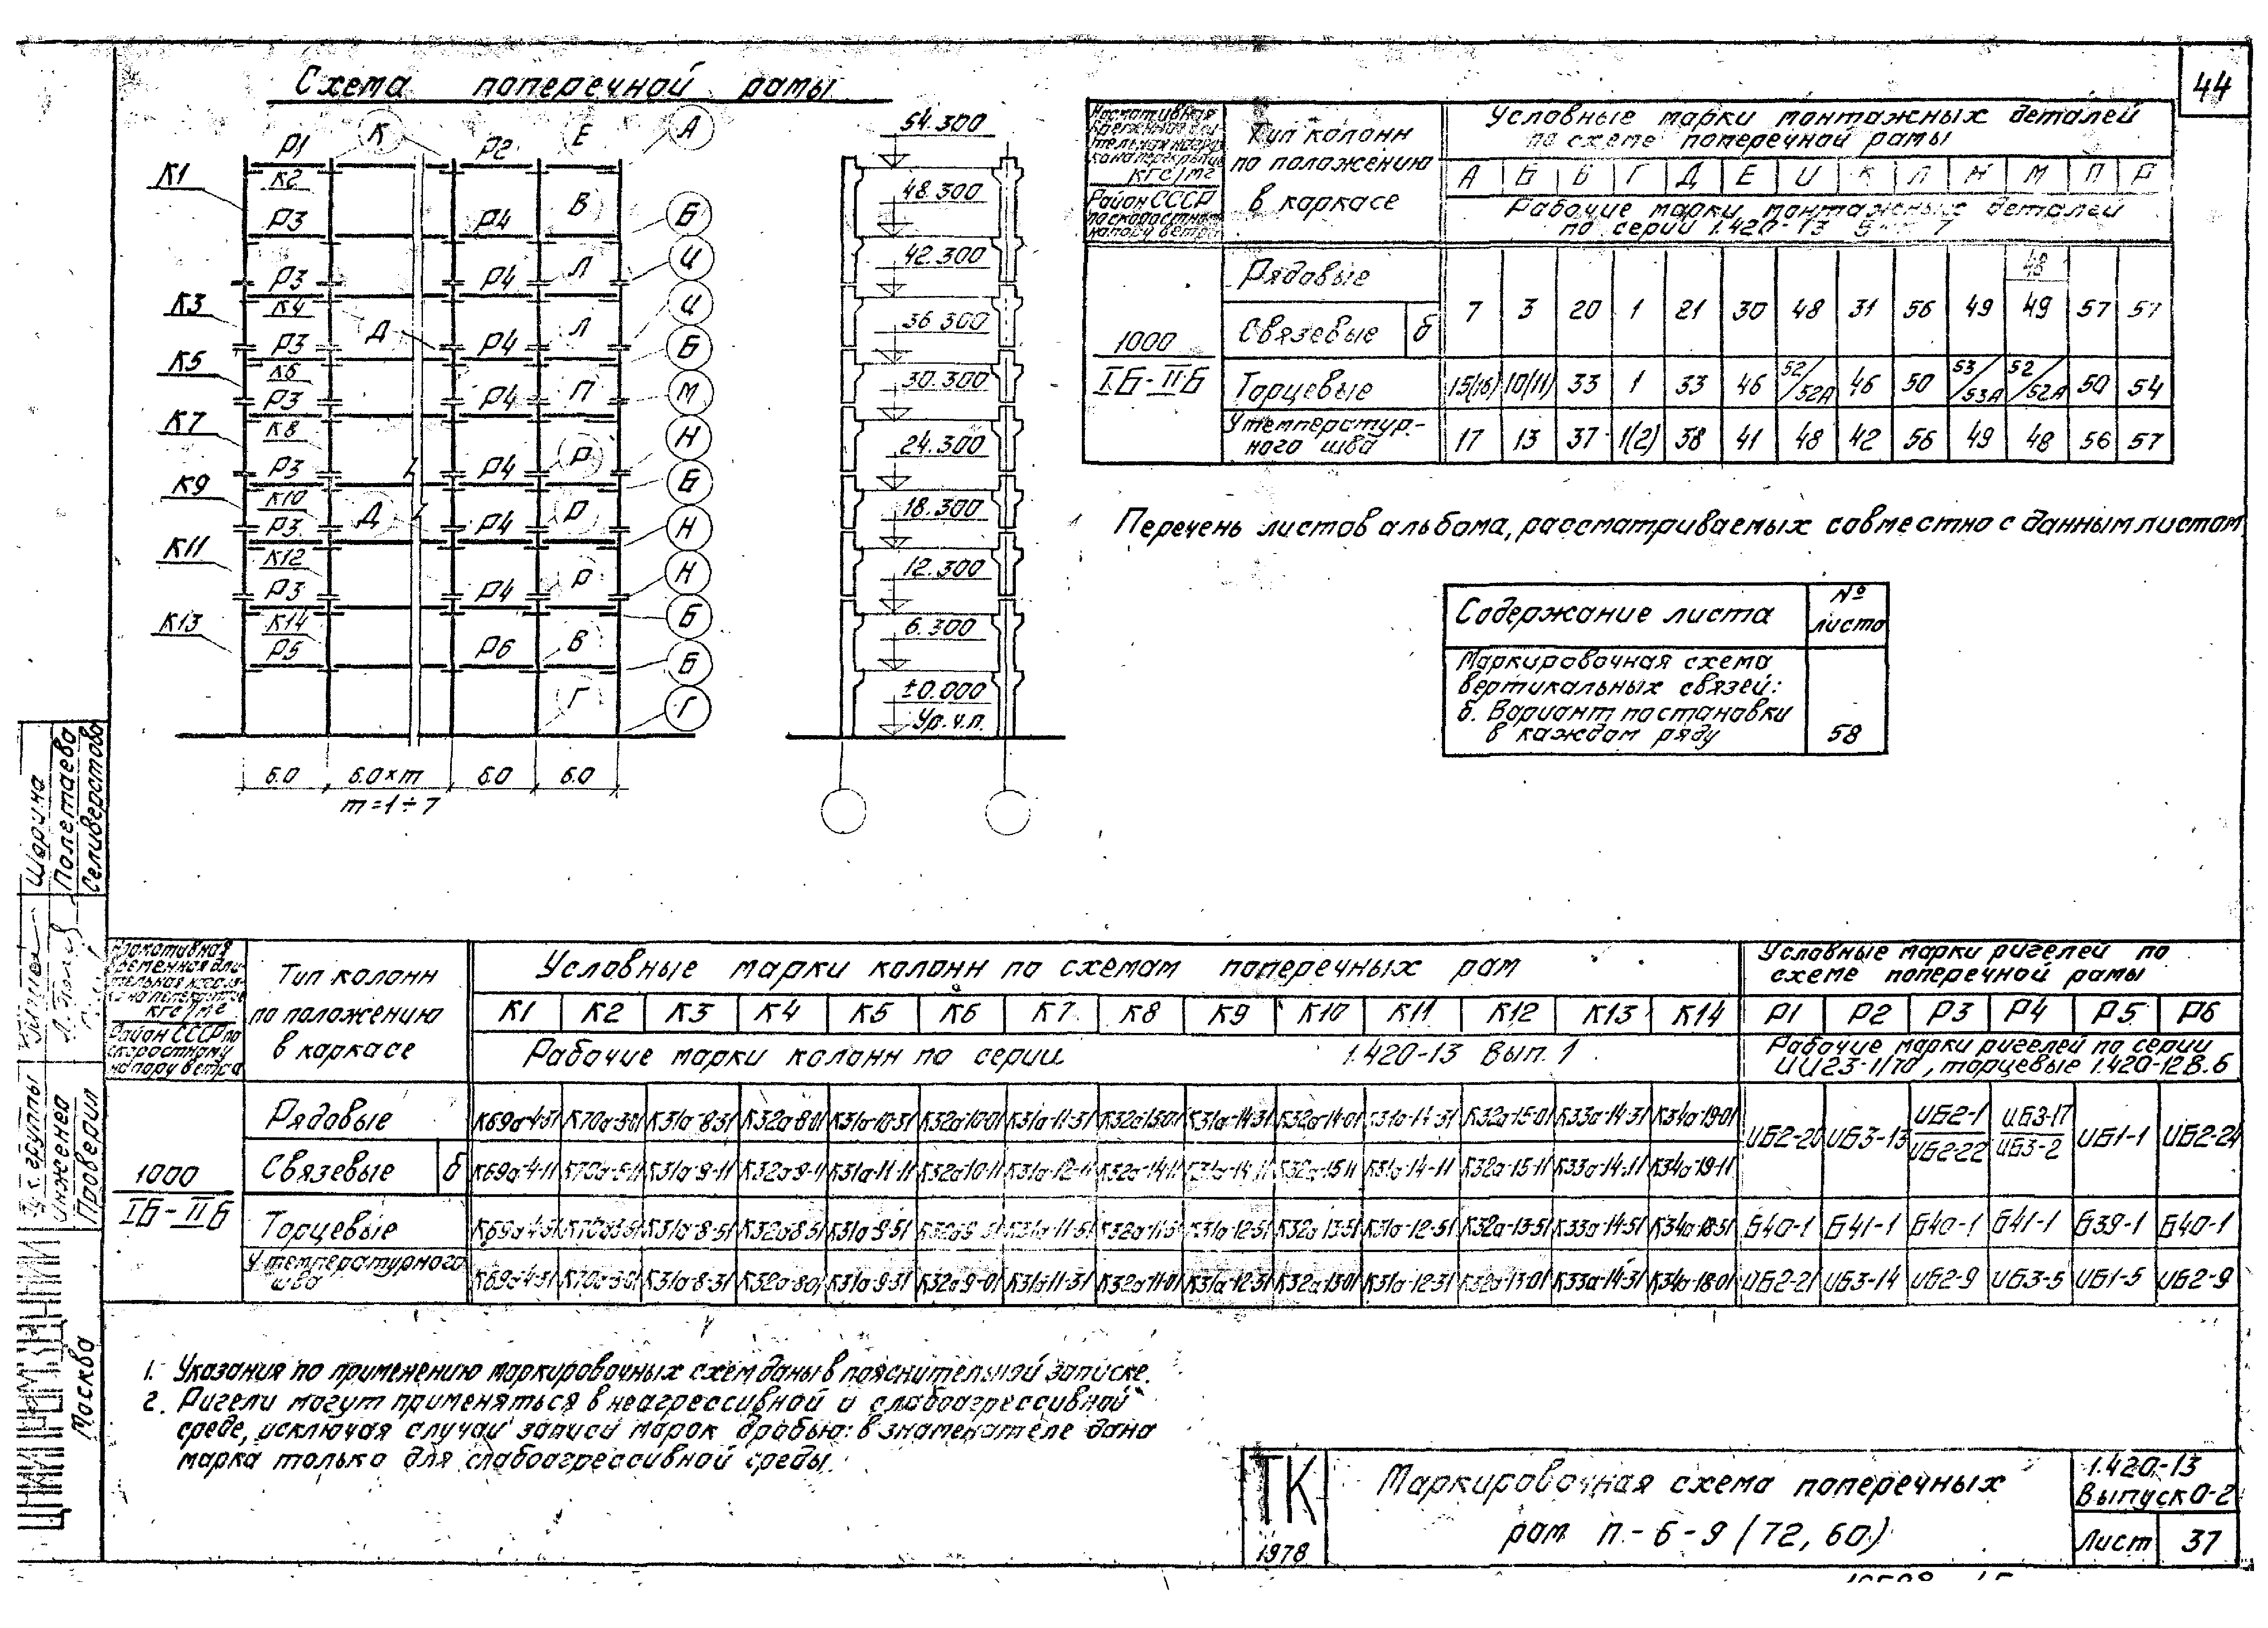 44
Схема поперечной рамы
К1
К3
К5
К7
К9
К11
К13
Р1 К Р2 Е А
К2
Р3 Р4 В Б
Р3 Р4 Л И
К4 Д Р4 Л И
Р3 Б
К6 Р3 Р4 П М
К8 Р3 Р4 Р Н
К10 Д Р4 Р Б
Р3 Н
К12 Р3 Р4 Р Н
К14 Б
Р5 Р6 В Б
Г Г
6.0 6.0×m 6.0 6.0
m=1÷7
54.300
48.300
42.300
36.300
30.300
24.300
18.300
12.300
6.300
±0.000
Ур.ч.п.
кгс/м2
Район СССР
по скоростному
напору ветра
Тип колонн
по положению
в каркасе
Условные марки монтажных деталей
по схеме поперечной рамы
А Б Г Д Е И К Л Н М П Р
Рабочие марки монтажных деталей
по серии 1.420-13 7
1000
IБ-IIБ
Рядовые
Связевые б
7 3 20 1 21 30 48 31 56 49 48/49 57 57
Торцевые 15(16) 10(11) 33 1 33 46 52/52А 46 50 53/53А 52/52А 50 54
У температур-
ного шва 17 13 37 1(2) 38 41 48 42 56 49 48 56 57
Перечень листов альбома, рассматриваемых совместно с данным листом
Содержание листа № листа
Маркировочная схема
вертикальных связей:
б. Вариант постановки
в каждом ряду 58
кгс/м2
Район СССР по
скоростному
напору ветра
Тип колонн
по положению
в каркасе
Условные марки колонн по схемам поперечных рам
К1 К2 К3 К4 К5 К6 К7 К8 К9 К10 К11 К12 К13 К14
Рабочие марки колонн по серии 1.420-13 Вып. 1
Условные марки ригелей по
схеме поперечной рамы
Р1 Р2 Р3 Р4 Р5 Р6
Рабочие марки ригелей по серии
ИИ23-1/70, торцевые 1.420-12 В.6
1000
IБ-IIБ
Рядовые К69а-4-31 К31а-8-31 К32а-8-01 К31а-10-31 К32а-10-01 К31а-11-31 К32а-13-01 К31а-14-31 К32а-14-01 К32а-15-01 К33а-14-31 К34а-19-01
Связевые б К69а-4-11 К31а-9-11 К32а-9-11 К31а-11-11 К32а-10-11 К31а-12-11 К32а-14-11 К31а-14-11 К32а-15-11 К31а-14-11 К32а-15-11 К33а-14-11 К34а-19-11
ИБ2-20 ИБ3-13 ИБ2-1/ИБ2-22 ИБ3-17/ИБ3-2 ИБ1-1 ИБ2-24
Торцевые К31а-8-51 К32а-8-51 К31а-9-51 К31а-11-51 К32а-11-51 К31а-12-51 К32а-13-51 К31а-12-51 К32а-13-51 К33а-14-51 К34а-18-51 Б40-1 Б41-1 Б40-1 Б41-1 Б39-1 Б40-1
У температурного
шва К69а-4-31 К31а-8-31 К32а-8-01 К31а-9-31 К32а-9-01 К31а-11-31 К32а-11-01 К31а-12-31 К32а-13-01 К31а-12-31 К32а-13-01 К33а-14-31 К34а-18-01 ИБ2-21 ИБ3-14 ИБ2-9 ИБ3-5 ИБ1-5 ИБ2-9
1. Указания по применению маркировочных схем даны в пояснительной записке.
2. Ригели могут применяться в неагрессивной и слабоагрессивной
среде, исключая случаи записи марок дробью: в знаменателе дана
марка только для слабоагрессивной среды.
ТК
1978
Маркировочная схема поперечных
рам п-6-9 (72, 60)
1.420-13
Выпуск 0-2
Лист 37
Шарина
Полетаева
Селиверстова
группы
инженер
Проверил
Москва